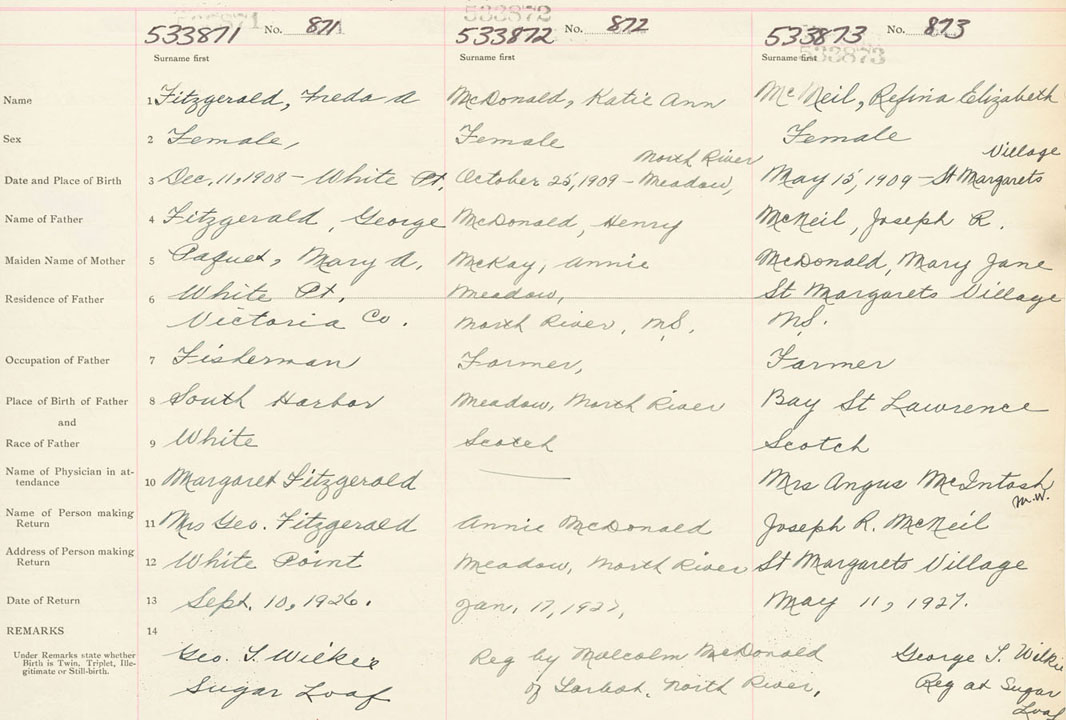 533871 No. 871
533872 No. 872
533873 No. 873
Surname first
Surname first
Surname first
Name 1 Fitzgerald, Freda A McDonald, Katie Ann McNeil, Refina Elizabeth
Sex 2 Female, Female Female
North River Village
Date and Place of Birth 3 Dec, 11, 1908 - White Pt, October 25, 1909 - Meadow, May 15, 1909 - St Margarets
Name of Father 4 Fitzgerald, George McDonald, Henry McNeil, Joseph R.
Maiden Name of Mother 5 Paquet, Mary A. McKay, Annie McDonald, Mary Jane
Residence of Father 6 White Pt, Meadow, St Margarets Village
Victoria Co. North River, N.S, N.S.
Occupation of Father 7 Fisherman Farmer, Farmer
Place of Birth of Father 8 South Harbor Meadow, North River Bay St Lawrence
and
Race of Father 9 White Scotch Scotch
Name of Physician in at-
tendance 10 Margaret Fitzgerald Mrs Angus McIntosh
M.W.
Name of Person making
Return 11 Mrs Geo. Fitzgerald Annie McDonald Joseph R. McNeil
Address of Person making
Return 12 White Point Meadow, North River St Margarets Village
Date of Return 13 Sept. 10, 1926. Jan, 17, 1927, May 11, 1927.
REMARKS 14
Under Remarks state whether
Birth is Twin, Triplet, Ille-
gitimate or Still-birth.
Geo. T. Wilkie Reg by Malcolm McDonald George T. Wilkie
Sugar Loaf of Tarbot, North River, Reg at Sugar
Loaf